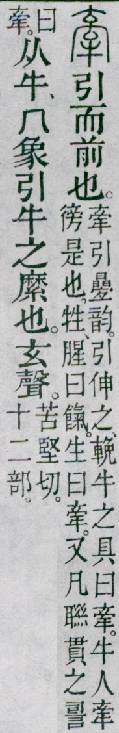 牽引而前也。
牽引疊韵。引伸之、輓牛之具曰牽。牛人牽
徬是也。牲、腥曰餼。生曰牽。又凡聯貫之䛐
曰
牽。
从牛、冂象引牛之縻也。玄聲。
苦堅切。
十二部。